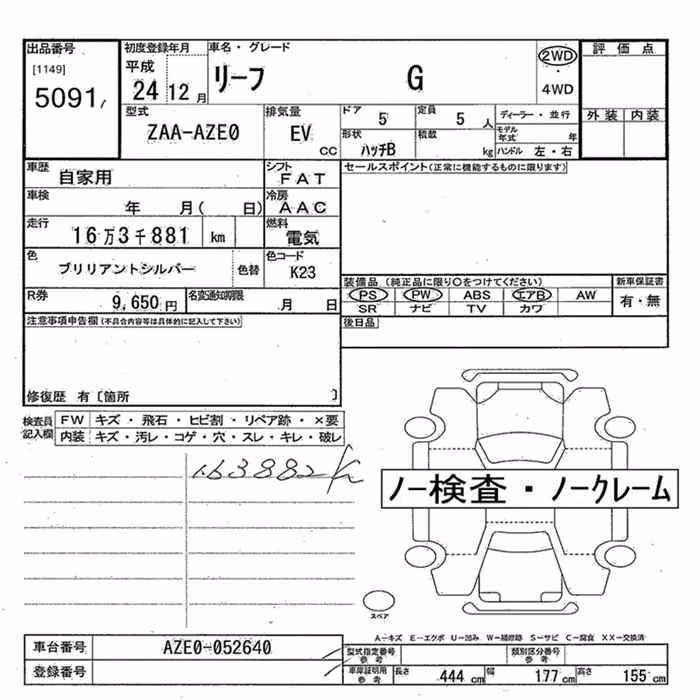 出品番号 初度登録年月 車名・グレード 2WD 評価点
[1149] 平成 リーフ G ・
5091 24 12月 4WD
型式 排気量 ドア 5 定員 5人 ディーラー・並行 外装 内装
ZAA-AZE0 EV CC 形状 ハッチB 積載 kg モデル年式 年
ハンドル 左・右
車歴 自家用 シフト FAT セールスポイント(正常に機能するものに限ります)
車検 年 月( 日) 冷房 AAC
走行 16万3千881 km 燃料 電気
色 ブリリアントシルバー 色替 色コード K23
装備品 (純正品に限り〇をつけてください) 新車保証書
R券 9,650円 名変通知期限 月 日 PS PW ABS エアB AW 有・無
SR ナビ TV カワ
注意事項申告欄(不具合内容等は具体的に記入して下さい) 後日品
修復歴 有〔箇所 〕
検査員記入欄 FW キズ・飛石・ヒビ割・リペア跡・×要
内装 キズ・汚レ・コゲ・穴・スレ・キレ・破レ
163882k
ノー検査・ノークレーム
スペア
A-キズ E-エクボ U-凹み W-補修跡 S-サビ C-腐食 XX-交換済
車台番号 AZE0-052640 型式指定番号参考 類別区分番号参考
登録番号 車庫証明用参考 長さ 444cm 幅 177cm 高さ 155cm